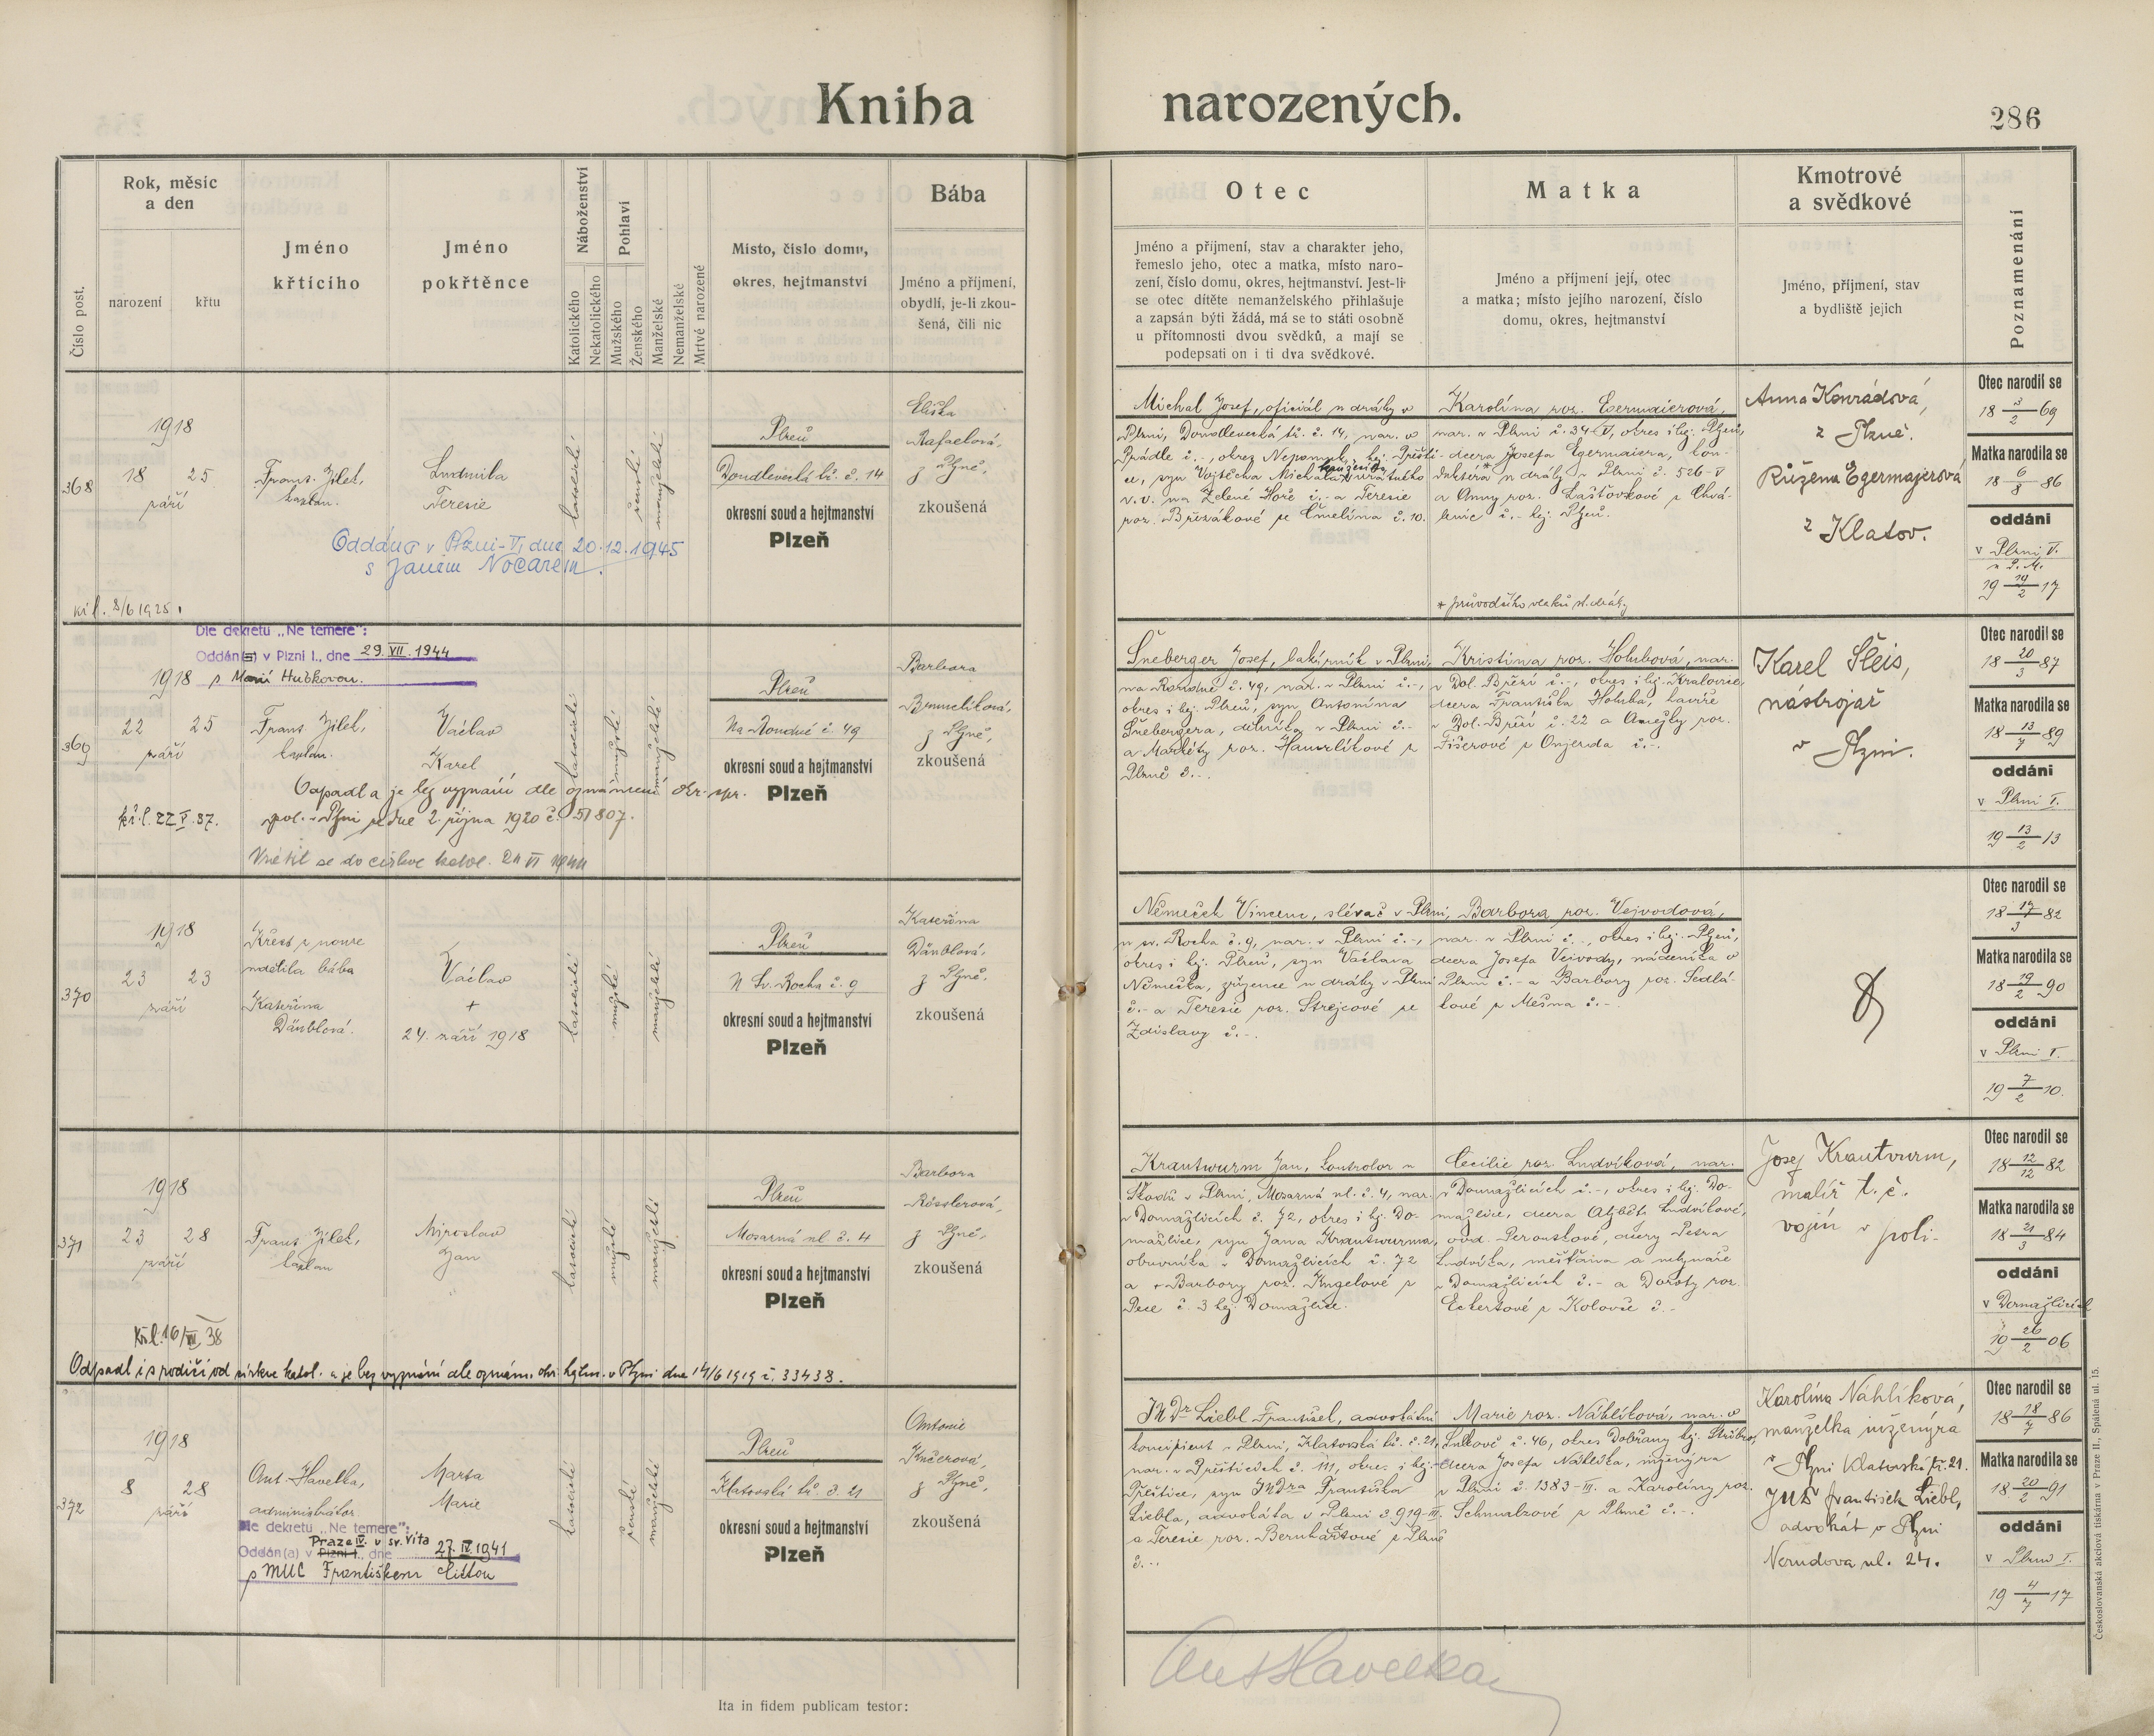 Kniha narozených.
286
Rok, měsíc
a den
narození
křtu
Číslo post.
Jméno
křticího
Jméno
pokřtěnce
Náboženství
Katolického
Nekatolického
Pohlaví
Mužského
Ženského
Manželské
Nemanželské
Mrtvě narozené
Místo, číslo domu,
okres, hejtmanství
Bába
Jméno a příjmení,
obydlí, je-li zkou-
šená, čili nic
Otec
Jméno a příjmení, stav a charakter jeho,
řemeslo jeho, otec a matka, místo naro-
zení, číslo domu, okres, hejtmanství. Jest-li
se otec dítěte nemanželského přihlašuje
a zapsán býti žádá, má se to státi osobně
u přítomnosti dvou svědků, a mají se
podepsati on i ti dva svědkové.
Matka
Jméno a příjmení její, otec
a matka; místo jejího narození, číslo
domu, okres, hejtmanství
Kmotrové
a svědkové
Jméno, příjmení, stav
a bydliště jejich
Poznamenání
368
1918
18 25
září
Frant. Jílek,
kaplan.
Ludmila
Teresie
katolické
ženské
manželské
Plzeň
Doudlevecká tř. č. 14
okresní soud a hejtmanství
Plzeň
Eliška
Rafaelová,
z Plzně,
zkoušená
Oddána v Plzni-V, dne 20.12.1945
s Janem Nocarem.
kř. l. 8/6 1925.
Michal Josef, oficiál u dráhy v
Plzni, Doudlevecká tř. č. 14, nar. v
Prádle č. -, okres Nepomuk, hej. Přešti-
ce, syn Vojtěcha Michala
v. v. na Zelené Hoře č. - a Teresie
roz. Březákové ze Čmelína č. 10.
Karolína roz. Egermaierová,
nar. v Plzni č. 34-V, okres i hej. Plzeň,
dcera Josefa Egermaiera, kon-
duktéra* u dráhy v Plzni č. 526-V
a Anny roz. Lašťovkové z Chvá-
lenic č. - hej. Plzeň.
* průvodčího vlaků st. dráhy
Anna Konrádová,
z Plzně.
Růžena Egermajerová
z Klatov.
Otec narodil se
18 3/2 69
Matka narodila se
18 6/8 86
oddáni
v Plzni V.
u P. M.
19 19/2 17
369
Dle dekretu „Ne temere":
Oddán(a) v Plzni I., dne 29. VII. 1944
s Marií Huškovou.
1918
22 25
září
Frant. Jílek,
kaplan.
Václav
Karel
katolické
mužské
manželské
Plzeň
Na Roudné č. 49
okresní soud a hejtmanství
Plzeň
Barbora
z Plzně,
zkoušená
Odpadl a je bez vyznání dle oznámení okr. spr.
pol. v Plzni ze dne 2. října 1920 č. 51807.
kř. l. 22 V. 37.
Vrátil se do církve katol. 24 VI 1944
Šneberger Josef, lakýrník v Plzni,
na Roudné č. 49, nar. v Plzni č. -,
okres i hej. Plzeň, syn Antonína
Šnebergera, dělníka v Plzni č. -
a Markéty roz. Hamrlíkové z
Plzně č. -.
Kristina roz. Holubová, nar.
v Dol. Bříží č. -, okres i hej. Kralovice,
dcera Františka Holuba, havíře
v Dol. Bříží č. 22 a Anežky roz.
Fišerové z Onjezda č. -.
Karel Šleis,
nástrojař
v Plzni.
Otec narodil se
18 20/3 87
Matka narodila se
18 13/7 89
oddáni
v Plzni I.
19 13/2 13
370
1918
23 23
září
Křest z nouze
udělila bába
Kateřina
Dänblová.
Václav
+
24. září 1918
katolické
mužské
manželské
Plzeň
U Sv. Rocha č. 9
okresní soud a hejtmanství
Plzeň
Kateřina
Dänblová,
z Plzně,
zkoušená
Němeček Vincenc, slévač v Plzni,
u sv. Rocha č. 9, nar. v Plzni č. -,
okres i hej. Plzeň, syn Václava
Němečka, zřízence u dráhy v Plzni
č. - a Terezie roz. Strejcové ze
Zdislavy č. -.
Barbora roz. Vejvodová,
nar. v Plzni č. -, okres i hej. Plzeň,
dcera Josefa Vejvody, nádeníka v
Plzni č. - a Barbory roz. Sedlá-
kové z Mešna č. -.
Otec narodil se
18 17/3 82
Matka narodila se
18 19/2 90
oddáni
v Plzni I.
19 7/2 10.
371
1918
23 28
září
Frant. Jílek,
kaplan
Miroslav
Jan
katolické
mužské
manželské
Plzeň
Mosarná ul. č. 4
okresní soud a hejtmanství
Plzeň
Barbora
Rösslerová,
z Plzně,
zkoušená
Kř. l. 16/III 38
Odpadl i s rodiči od církve katol. a je bez vyznání dle oznám. okr. hejtm. v Plzni dne 14/6 1919 č. 33438.
Krautwurm Jan, kontrolor u
Škodů v Plzni, Mosarná ul. č. 4, nar.
v Domažlicích č. 72, okres i hej. Do-
mažlice, syn Jana Krautwurma,
obuvníka v Domažlicích č. 72
a + Barbory roz. Kngelové z
Pece č. 3 hej. Domažlice.
Cecilie roz. Ludvíková, nar.
v Domažlicích č. -, okres i hej. Do-
mažlice, dcera Alžběty Ludvíkové,
ovd. Peroutkové, dcery Petra
Ludvíka, měšťana a mlynáře
v Domažlicích č. - a Doroty roz.
Eckertové z Koloveče č. -
Josef Krautwurm,
malíř t. č.
vojín v poli-
Otec narodil se
18 12/12 82
Matka narodila se
18 21/3 84
oddáni
v Domažlicích
19 26/2 06
372
1918
8 28
září
Ant. Havelka,
administrátor.
Marta
Marie
katolické
ženské
manželské
Plzeň
Klatovská tř. č. 21
okresní soud a hejtmanství
Plzeň
Antonie
Kučerová,
z Plzně,
zkoušená
Dle dekretu „Ne temere":
Praze IV. u sv. Víta
Oddán(a) v Plzni I., dne 27. IV. 1941
s MUC Františkem
JUDr Liebl František, advokátní
koncipient v Plzni, Klatovská tř. č. 21,
nar. v Přešticích č. 111, okres i hej.
Přeštice, syn JUDra Františka
Liebla, advokáta v Plzni č. 919-III.
a Terezie roz. Bernhartové z Plzně
č. -.
Marie roz. Náhlíková, nar. v
č. 46, okres Dobřany hej. Stříbro,
dcera Josefa Náhlíka, inženýra
v Plzni č. 1383-III. a Karolíny roz.
Schmalzové z Plzně č. -.
Karolína Náhlíková,
manželka inženýra
v Plzni Klatovská tř. 21.
JUDr František Liebl,
advokát v Plzni
Nerudova ul. 24.
Otec narodil se
18 18/7 86
Matka narodila se
18 20/2 91
oddáni
v Plzni I.
19 4/7 17
Ita in fidem publicam testor:
Ant Havelka
Československá akciová tiskárna v Praze II., Spálená ul. 15.